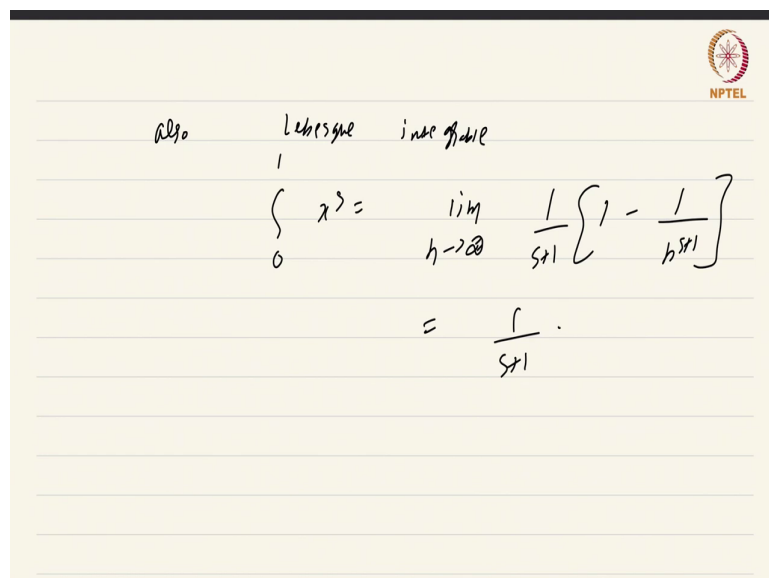 NPTEL
also Lebesgue integrable
∫₀¹ xˢ = lim_{n->∞} 1/(s+1) [1 - 1/n^{s+1}]
= 1/(s+1).